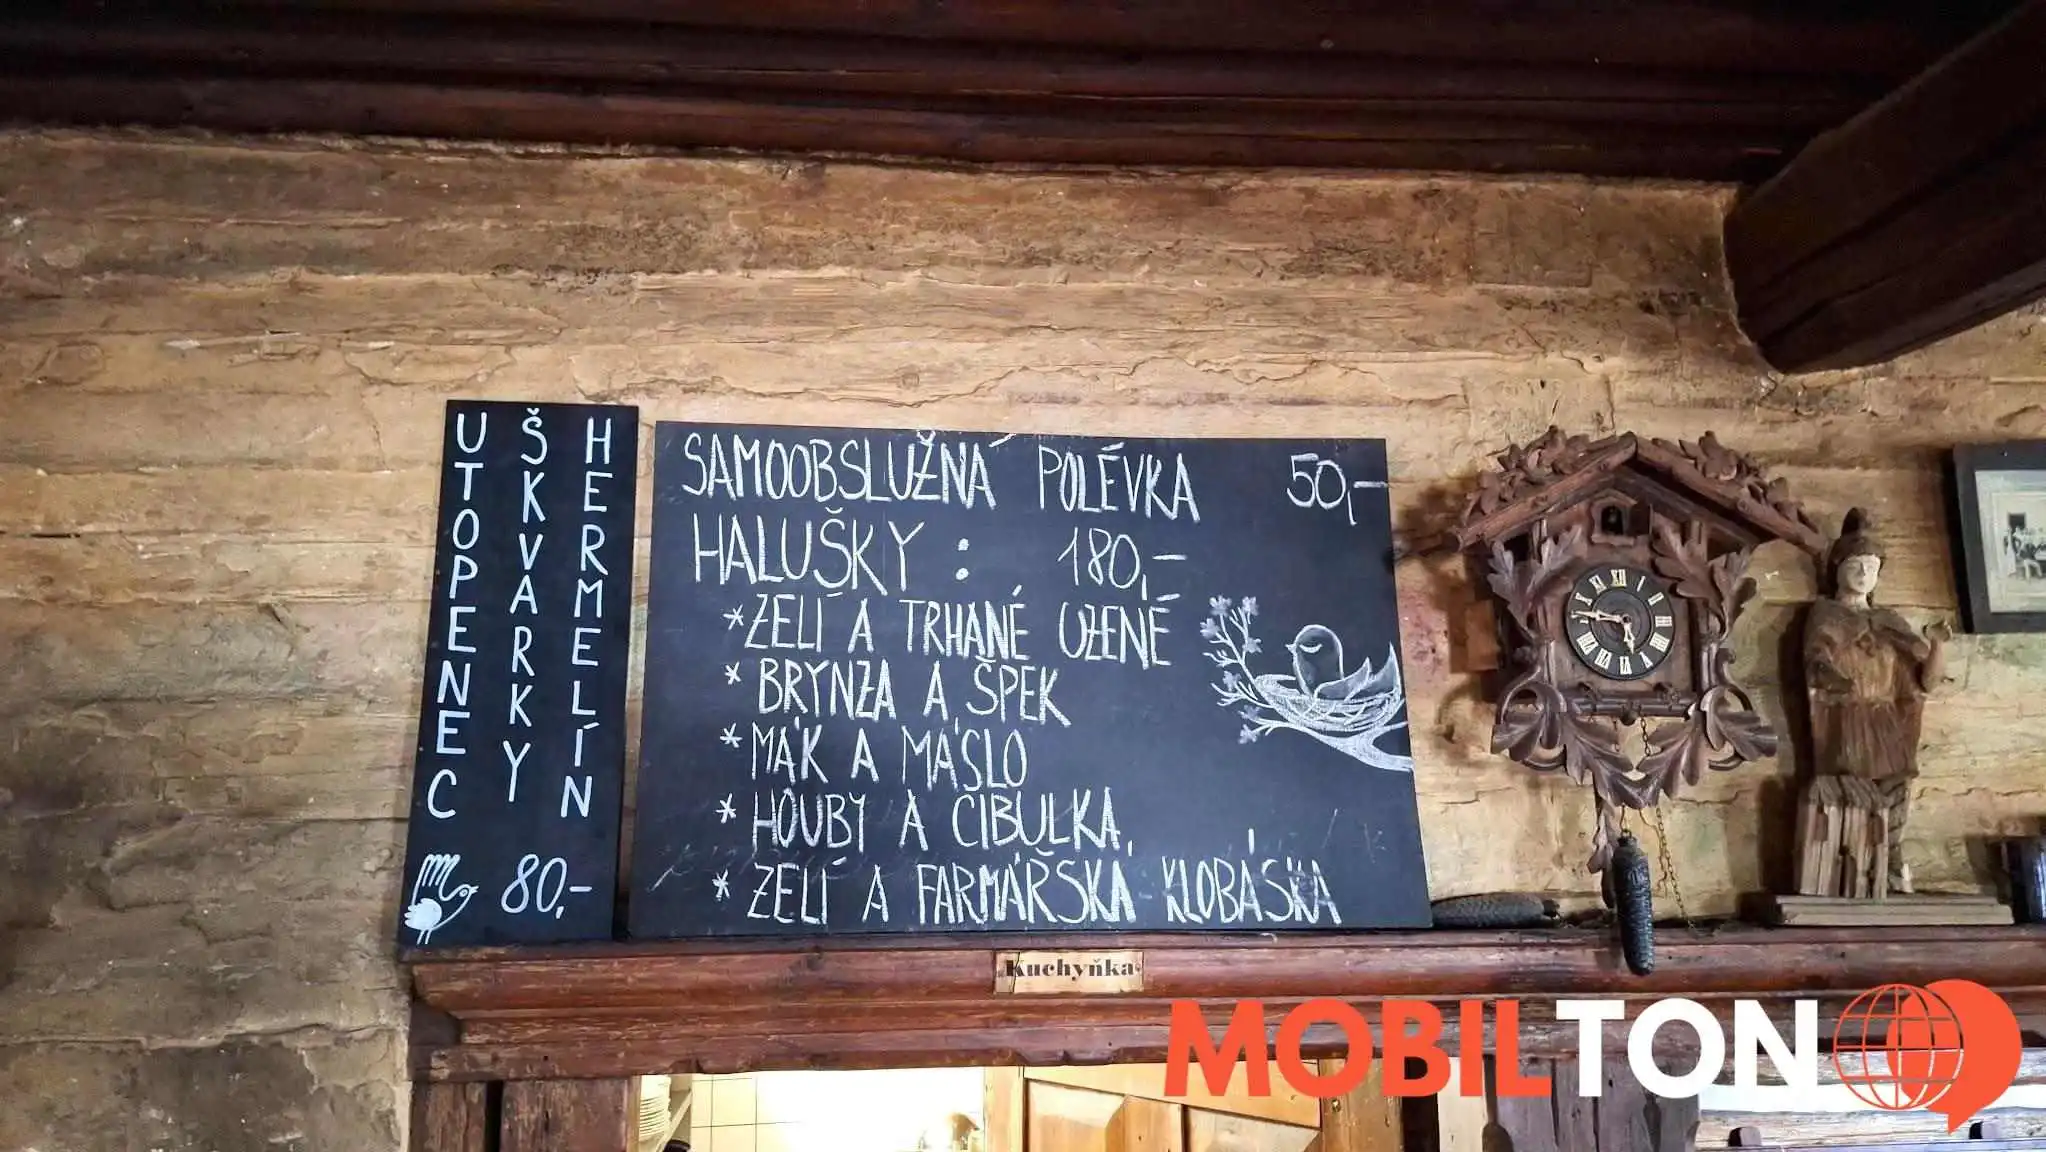 UTOPENEC
ŠKVARKY
HERMELÍN
80,-
SAMOOBSLUŽNÁ POLÉVKA 50,-
HALUŠKY : 180,-
*ZELÍ A TRHANÉ UZENÉ
* BRYNZA A ŠPEK
* MÁK A MÁSLO
* HOUBY A CIBULKA
* ZELÍ A FARMÁŘSKÁ KLOBÁSKA
Kuchyňka
MOBILTON